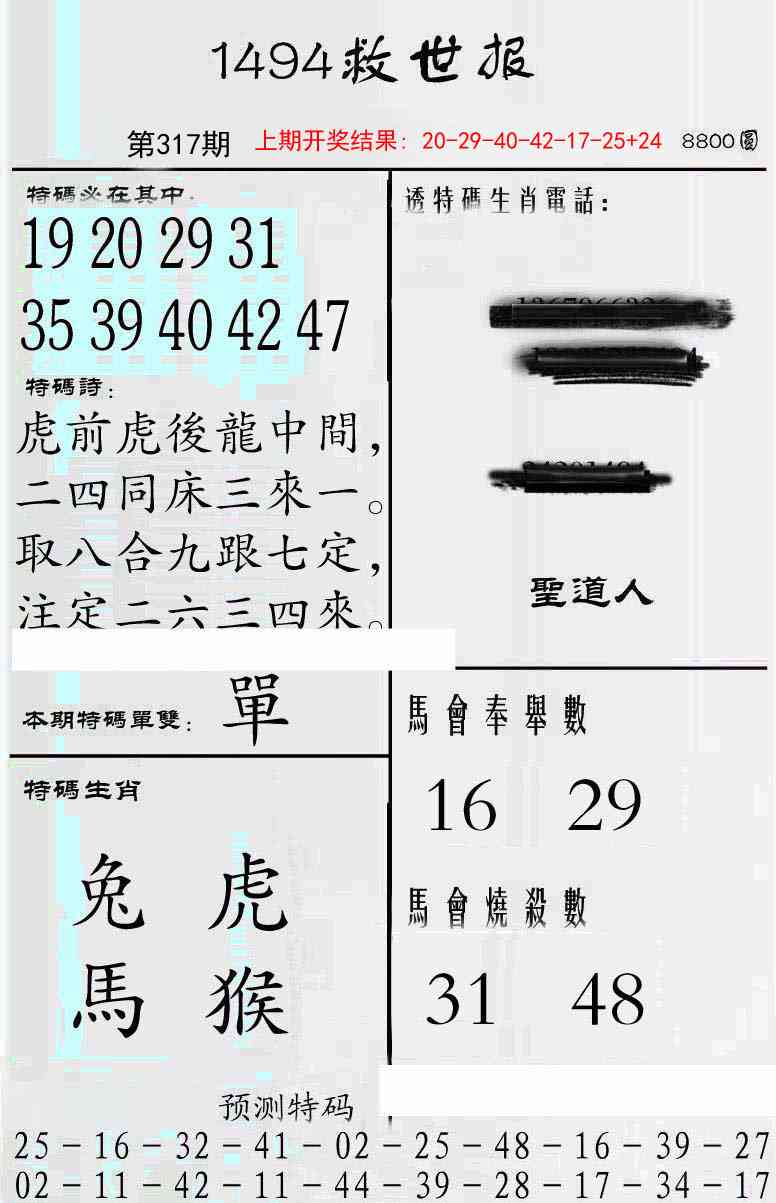 1494救世报
第317期 上期开奖结果：20-29-40-42-17-25+24 8800圓
特碼必在其中：
19 20 29 31
35 39 40 42 47
特碼詩：
虎前虎後龍中間，
二四同床三來一。
取八合九跟七定，
注定二六三四來。
本期特碼單雙：單
特碼生肖
兔 虎
馬 猴
透特碼生肖電話：
聖道人
馬會奉舉數
16 29
馬會燒殺數
31 48
预测特码
25－16－32－41－02－25－48－16－39－27
02－11－42－11－44－39－28－17－34－17